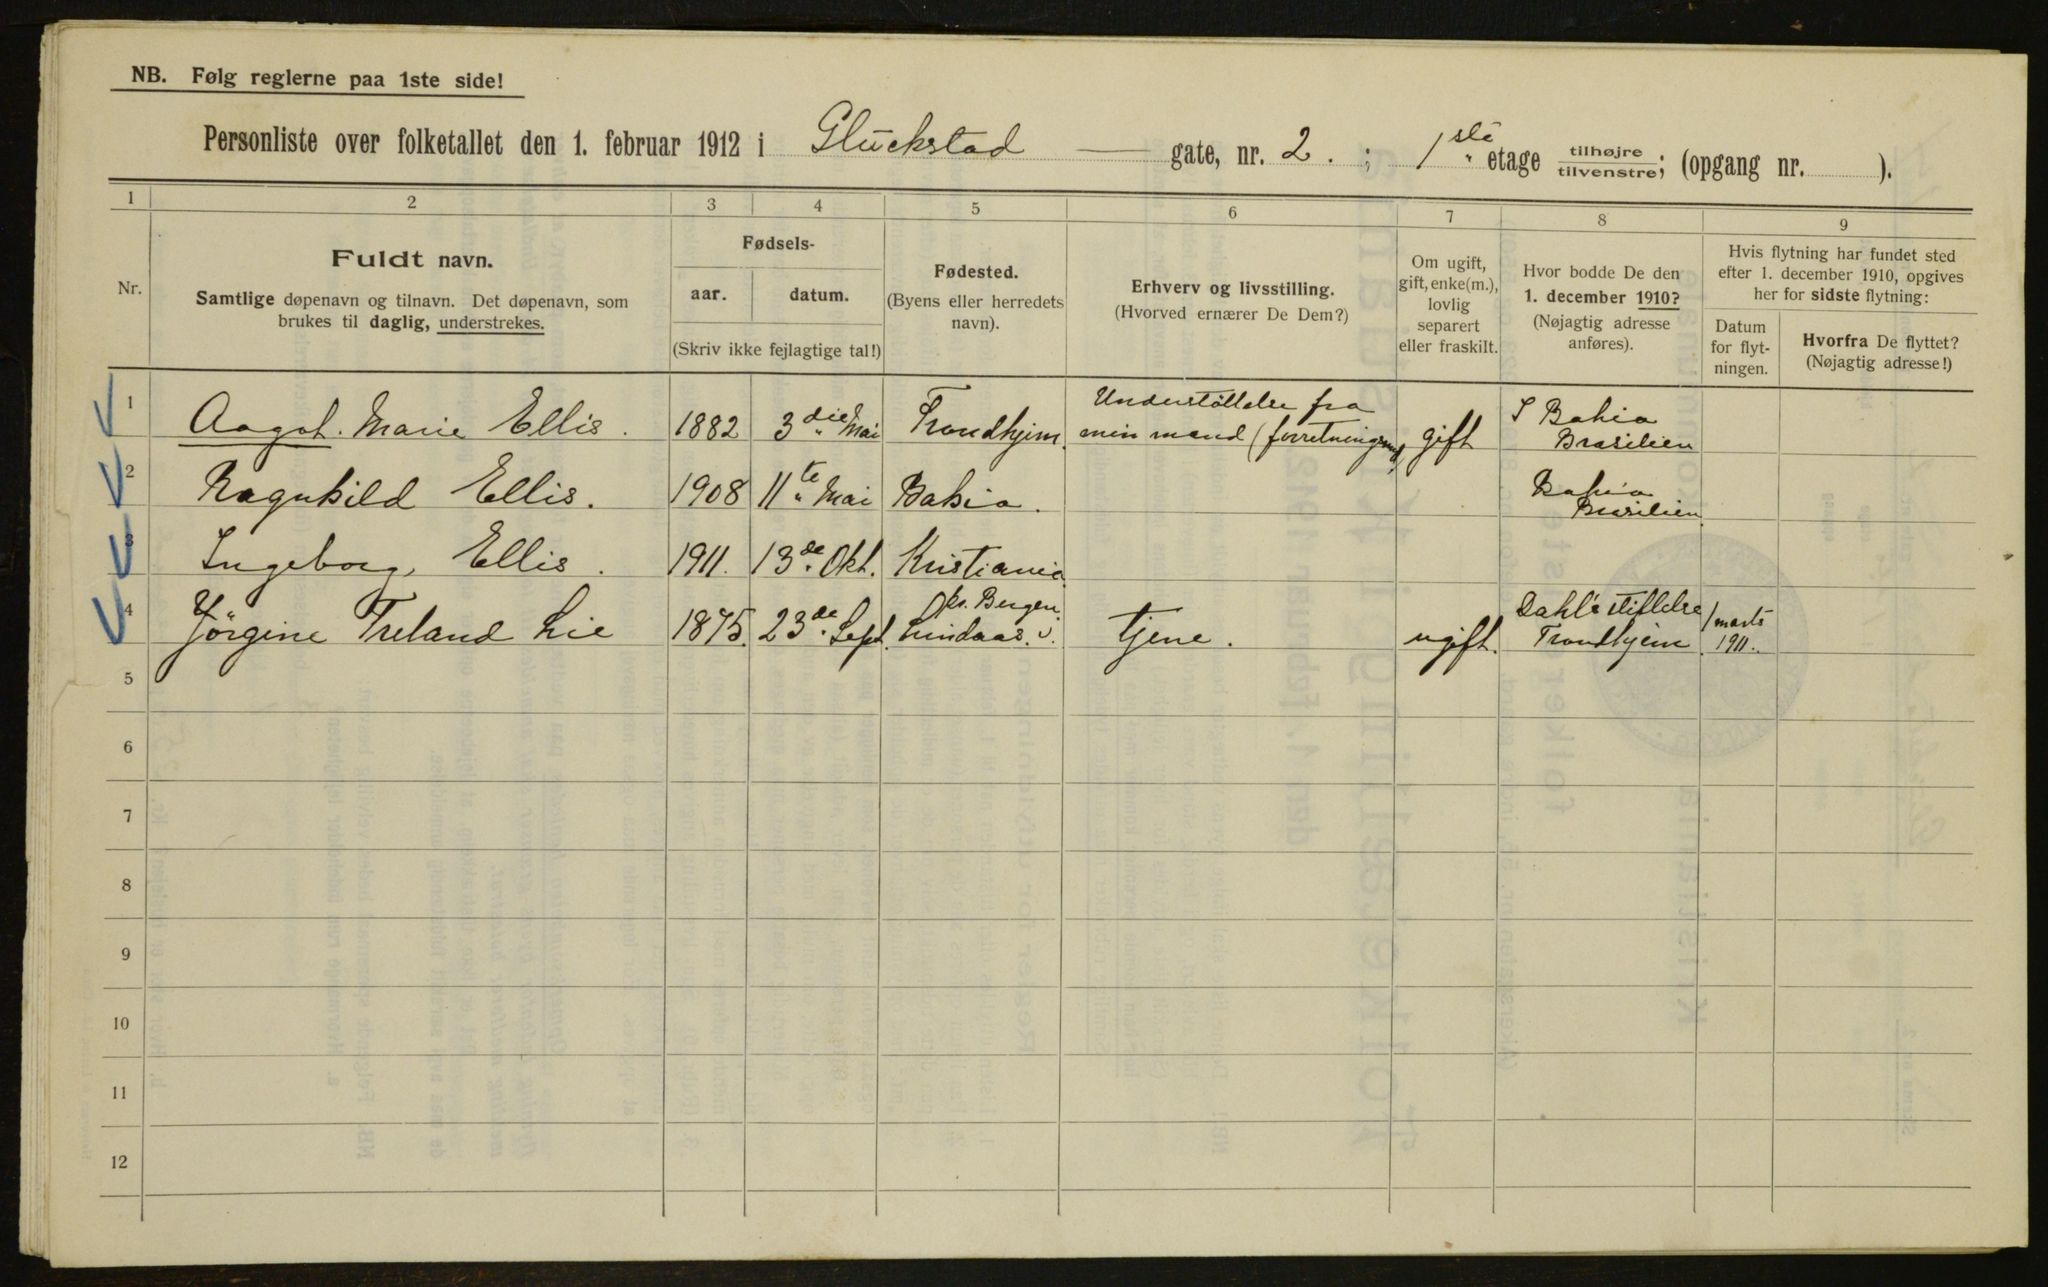 NB. Følg reglerne paa 1ste side!
Personliste over folketallet den 1. februar 1912 i Glückstad — gate, nr. 2. ; 1ste etage tilhøjre tilvenstre; (opgang nr. ).
1 2 3 4 5 6 7 8 9
Nr.
Fuldt navn.
Samtlige døpenavn og tilnavn. Det døpenavn, som
brukes til daglig, understrekes.
Fødsels-
aar. datum.
(Skriv ikke fejlagtige tal!)
Fødested.
(Byens eller herredets
navn).
Erhverv og livsstilling.
(Hvorved ernærer De Dem?)
Om ugift,
gift, enke(m.),
lovlig
separert
eller fraskilt.
Hvor bodde De den
1. december 1910?
(Nøjagtig adresse
anføres).
Hvis flytning har fundet sted
efter 1. december 1910, opgives
her for sidste flytning:
Datum
for flyt-
ningen.
Hvorfra De flyttet?
(Nøjagtig adresse!)
1 Aagot. Marie Ellis. 1882 3die Mai Trondhjem. Understöttelse fra
min mand (forretningsmd) gift I Bahia
Brasilien
2 Ragnhild Ellis. 1908 11te Mai Bahia. Bahia
Brasilien
3 Ingeborg Ellis. 1911. 13de Okt. Kristiania
4 Jörgine Lie 1875. 23de Sept. Lindaas Bergen tjene. ugift. Dahl's stiftelse
Trondhjem 1 marts
1911.
5
6
7
8
9
10
11
12